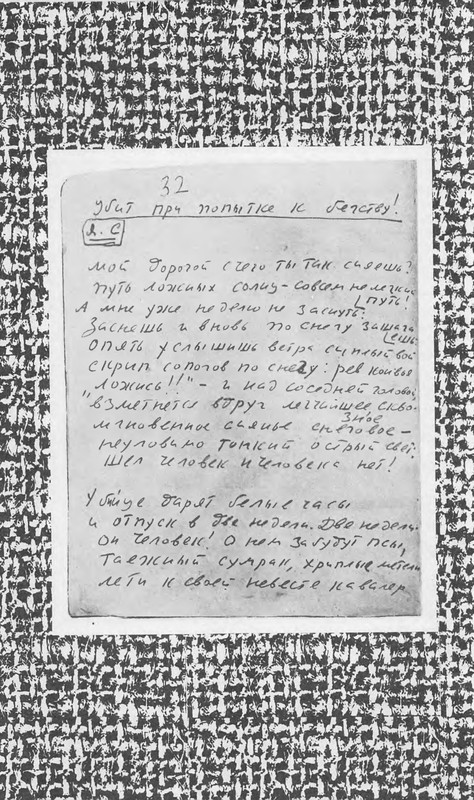 32
Убит при попытке к бегству!
А. С
мой дорогой с чего ты так сияешь?
путь ложных солнц – совсем не легкий
путь!
А мне уже неделю не заснуть:
Заснешь и вновь по снегу зашага
ешь
опять услышишь ветра сиплый вой
скрип сапогов по снегу: рев конвоя
"ложись!!" – и над соседней головой
взметнется вдруг легчайшее сквоз
зное
мгновенное сиянье снеговое –
неуловимо тонкий острый свет.
Шел человек и человека нет!
Убийце дарят белые часы
и отпуск в две недели. Две недели
он человек! О нем забудут псы,
таежный сумрак, хриплые метели
лети к своей невесте кавалер